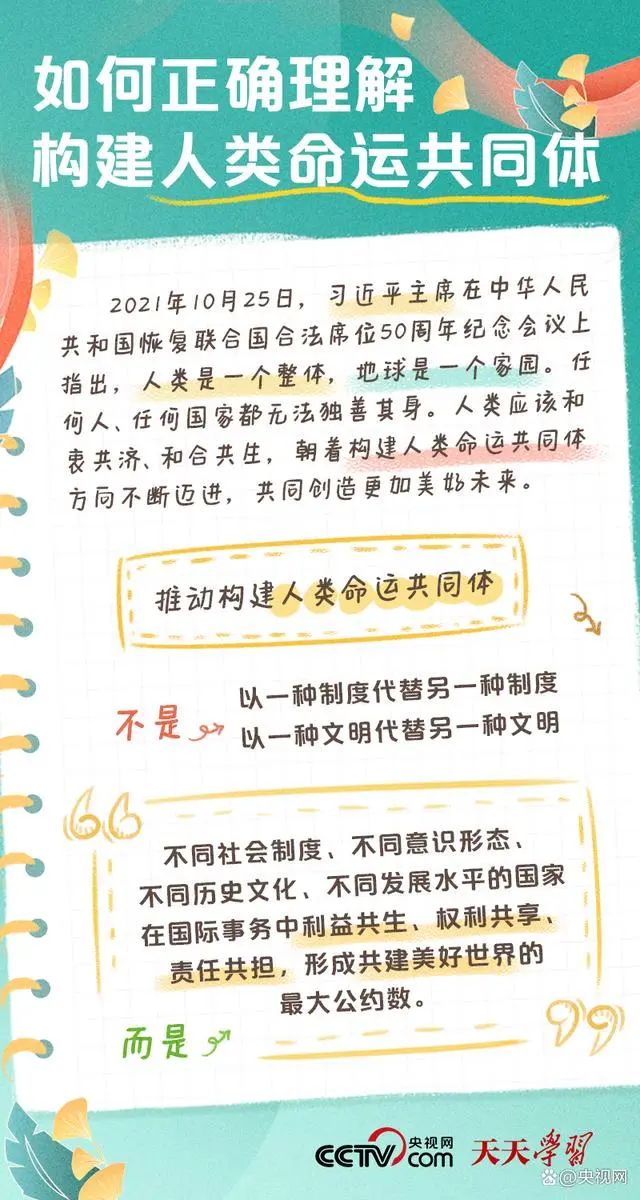 如何正确理解
构建人类命运共同体
2021年10月25日，习近平主席在中华人民
共和国恢复联合国合法席位50周年纪念会议上
指出，人类是一个整体，地球是一个家园。任
何人、任何国家都无法独善其身。人类应该和
衷共济、和合共生，朝着构建人类命运共同体
方向不断迈进，共同创造更加美好未来。
推动构建人类命运共同体
不是
以一种制度代替另一种制度
以一种文明代替另一种文明
不同社会制度、不同意识形态、
不同历史文化、不同发展水平的国家
在国际事务中利益共生、权利共享、
责任共担，形成共建美好世界的
最大公约数。
而是
CCTV.com 央视网 天天学习
@央视网